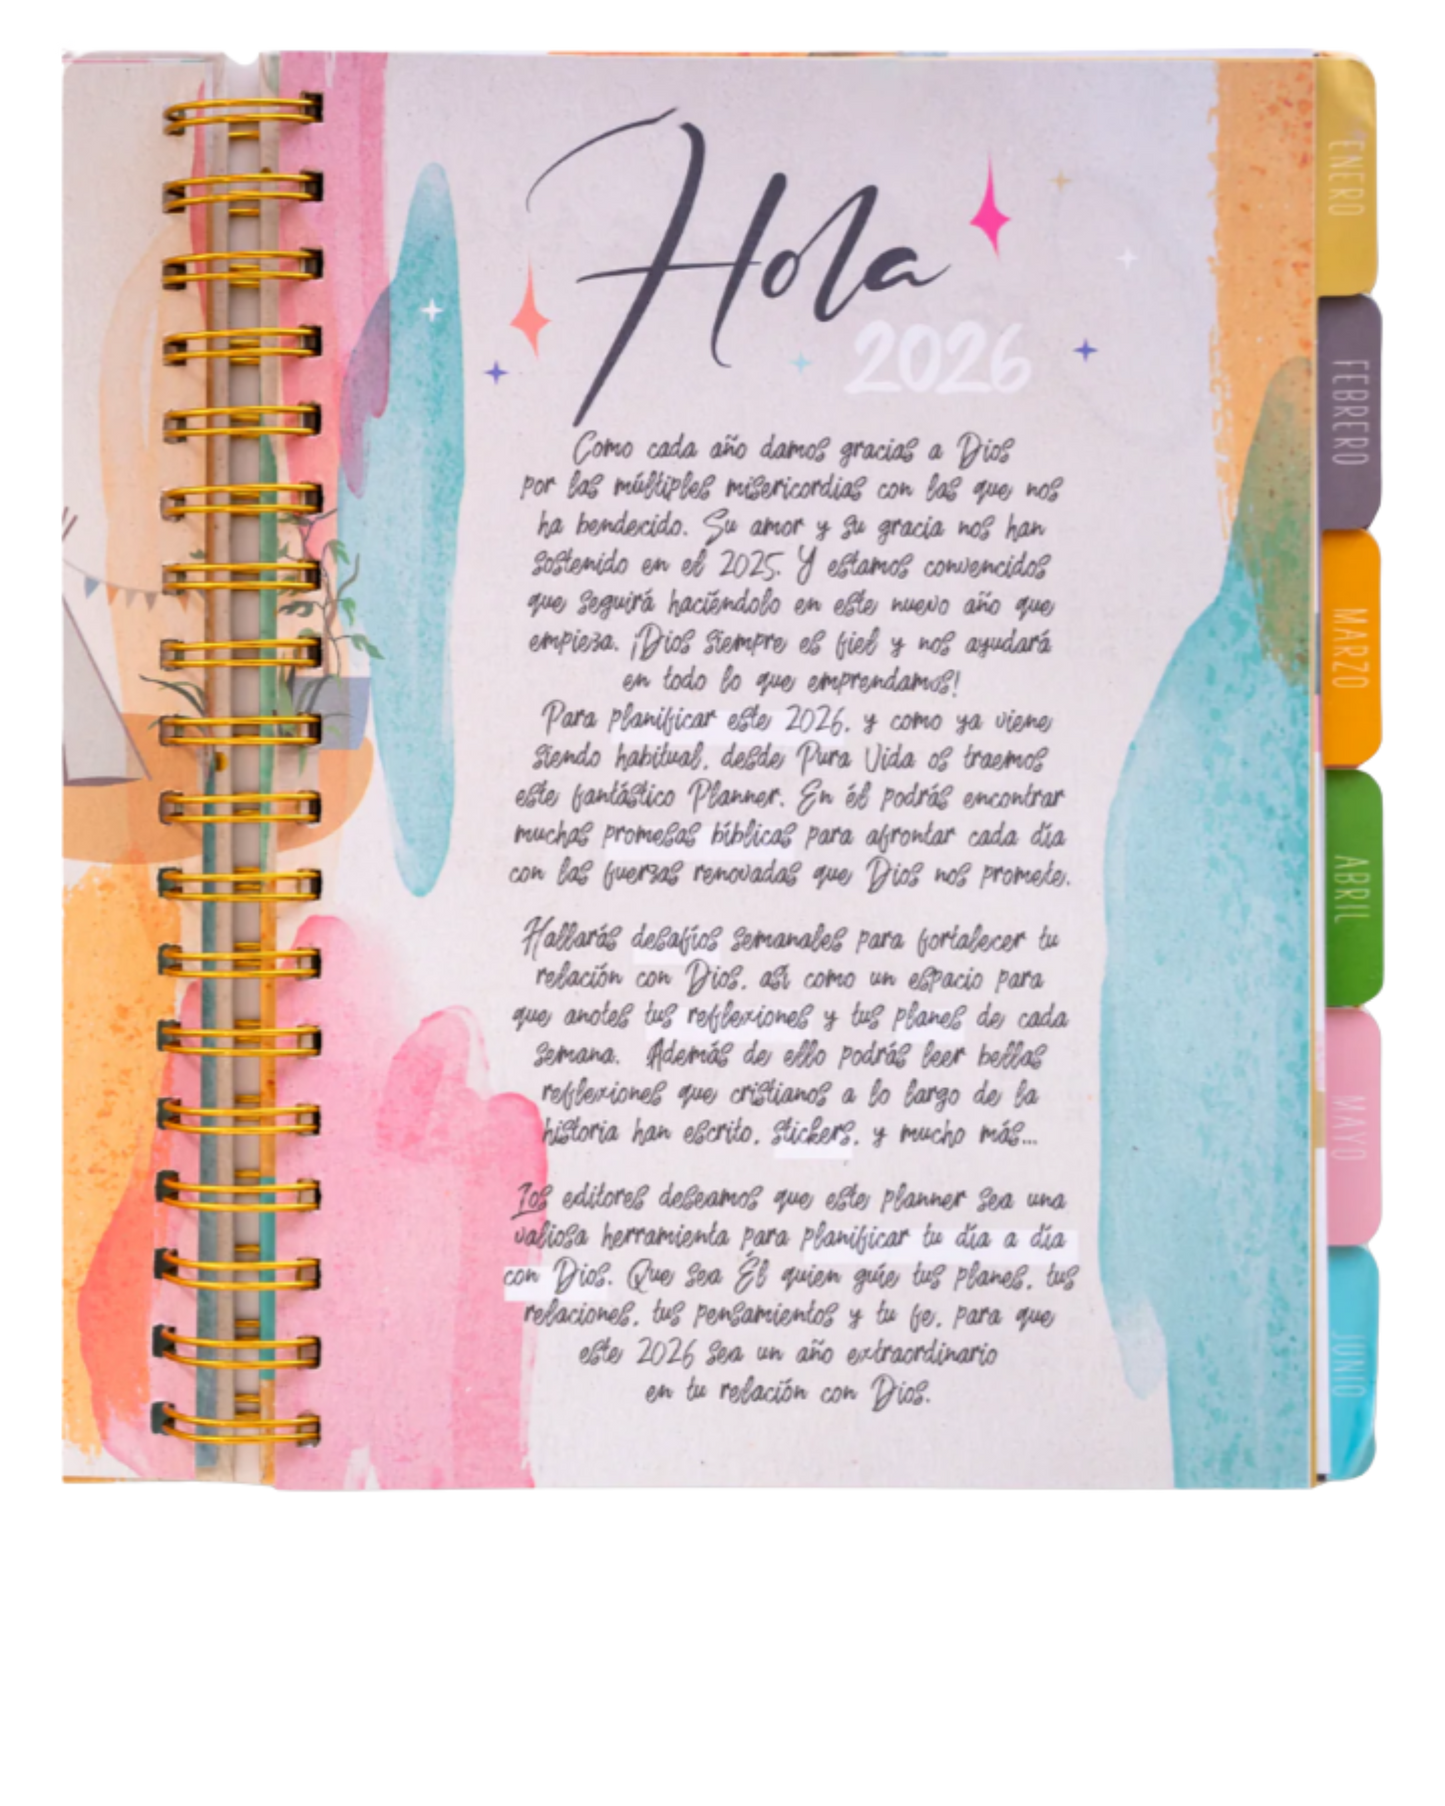 Hola
2026
Como cada año damos gracias a Dios
por las múltiples misericordias con las que nos
ha bendecido. Su amor y su gracia nos han
sostenido en el 2025. Y estamos convencidos
que seguirá haciéndolo en este nuevo año que
empieza. ¡Dios siempre es fiel y nos ayudará
en todo lo que emprendamos!
Para planificar este 2026, y como ya viene
siendo habitual, desde Pura Vida os traemos
este fantástico Planner. En él podrás encontrar
muchas promesas bíblicas para afrontar cada día
con las fuerzas renovadas que Dios nos promete.
Hallarás desafíos semanales para fortalecer tu
relación con Dios, así como un espacio para
que anotes tus reflexiones y tus planes de cada
semana. Además de ello podrás leer bellas
reflexiones que cristianos a lo largo de la
historia han escrito, stickers, y mucho más...
Los editores deseamos que este planner sea una
valiosa herramienta para planificar tu día a día
con Dios. Que sea Él quien guíe tus planes, tus
relaciones, tus pensamientos y tu fe, para que
este 2026 sea un año extraordinario
en tu relación con Dios.
ENERO
FEBRERO
MARZO
ABRIL
MAYO
JUNIO